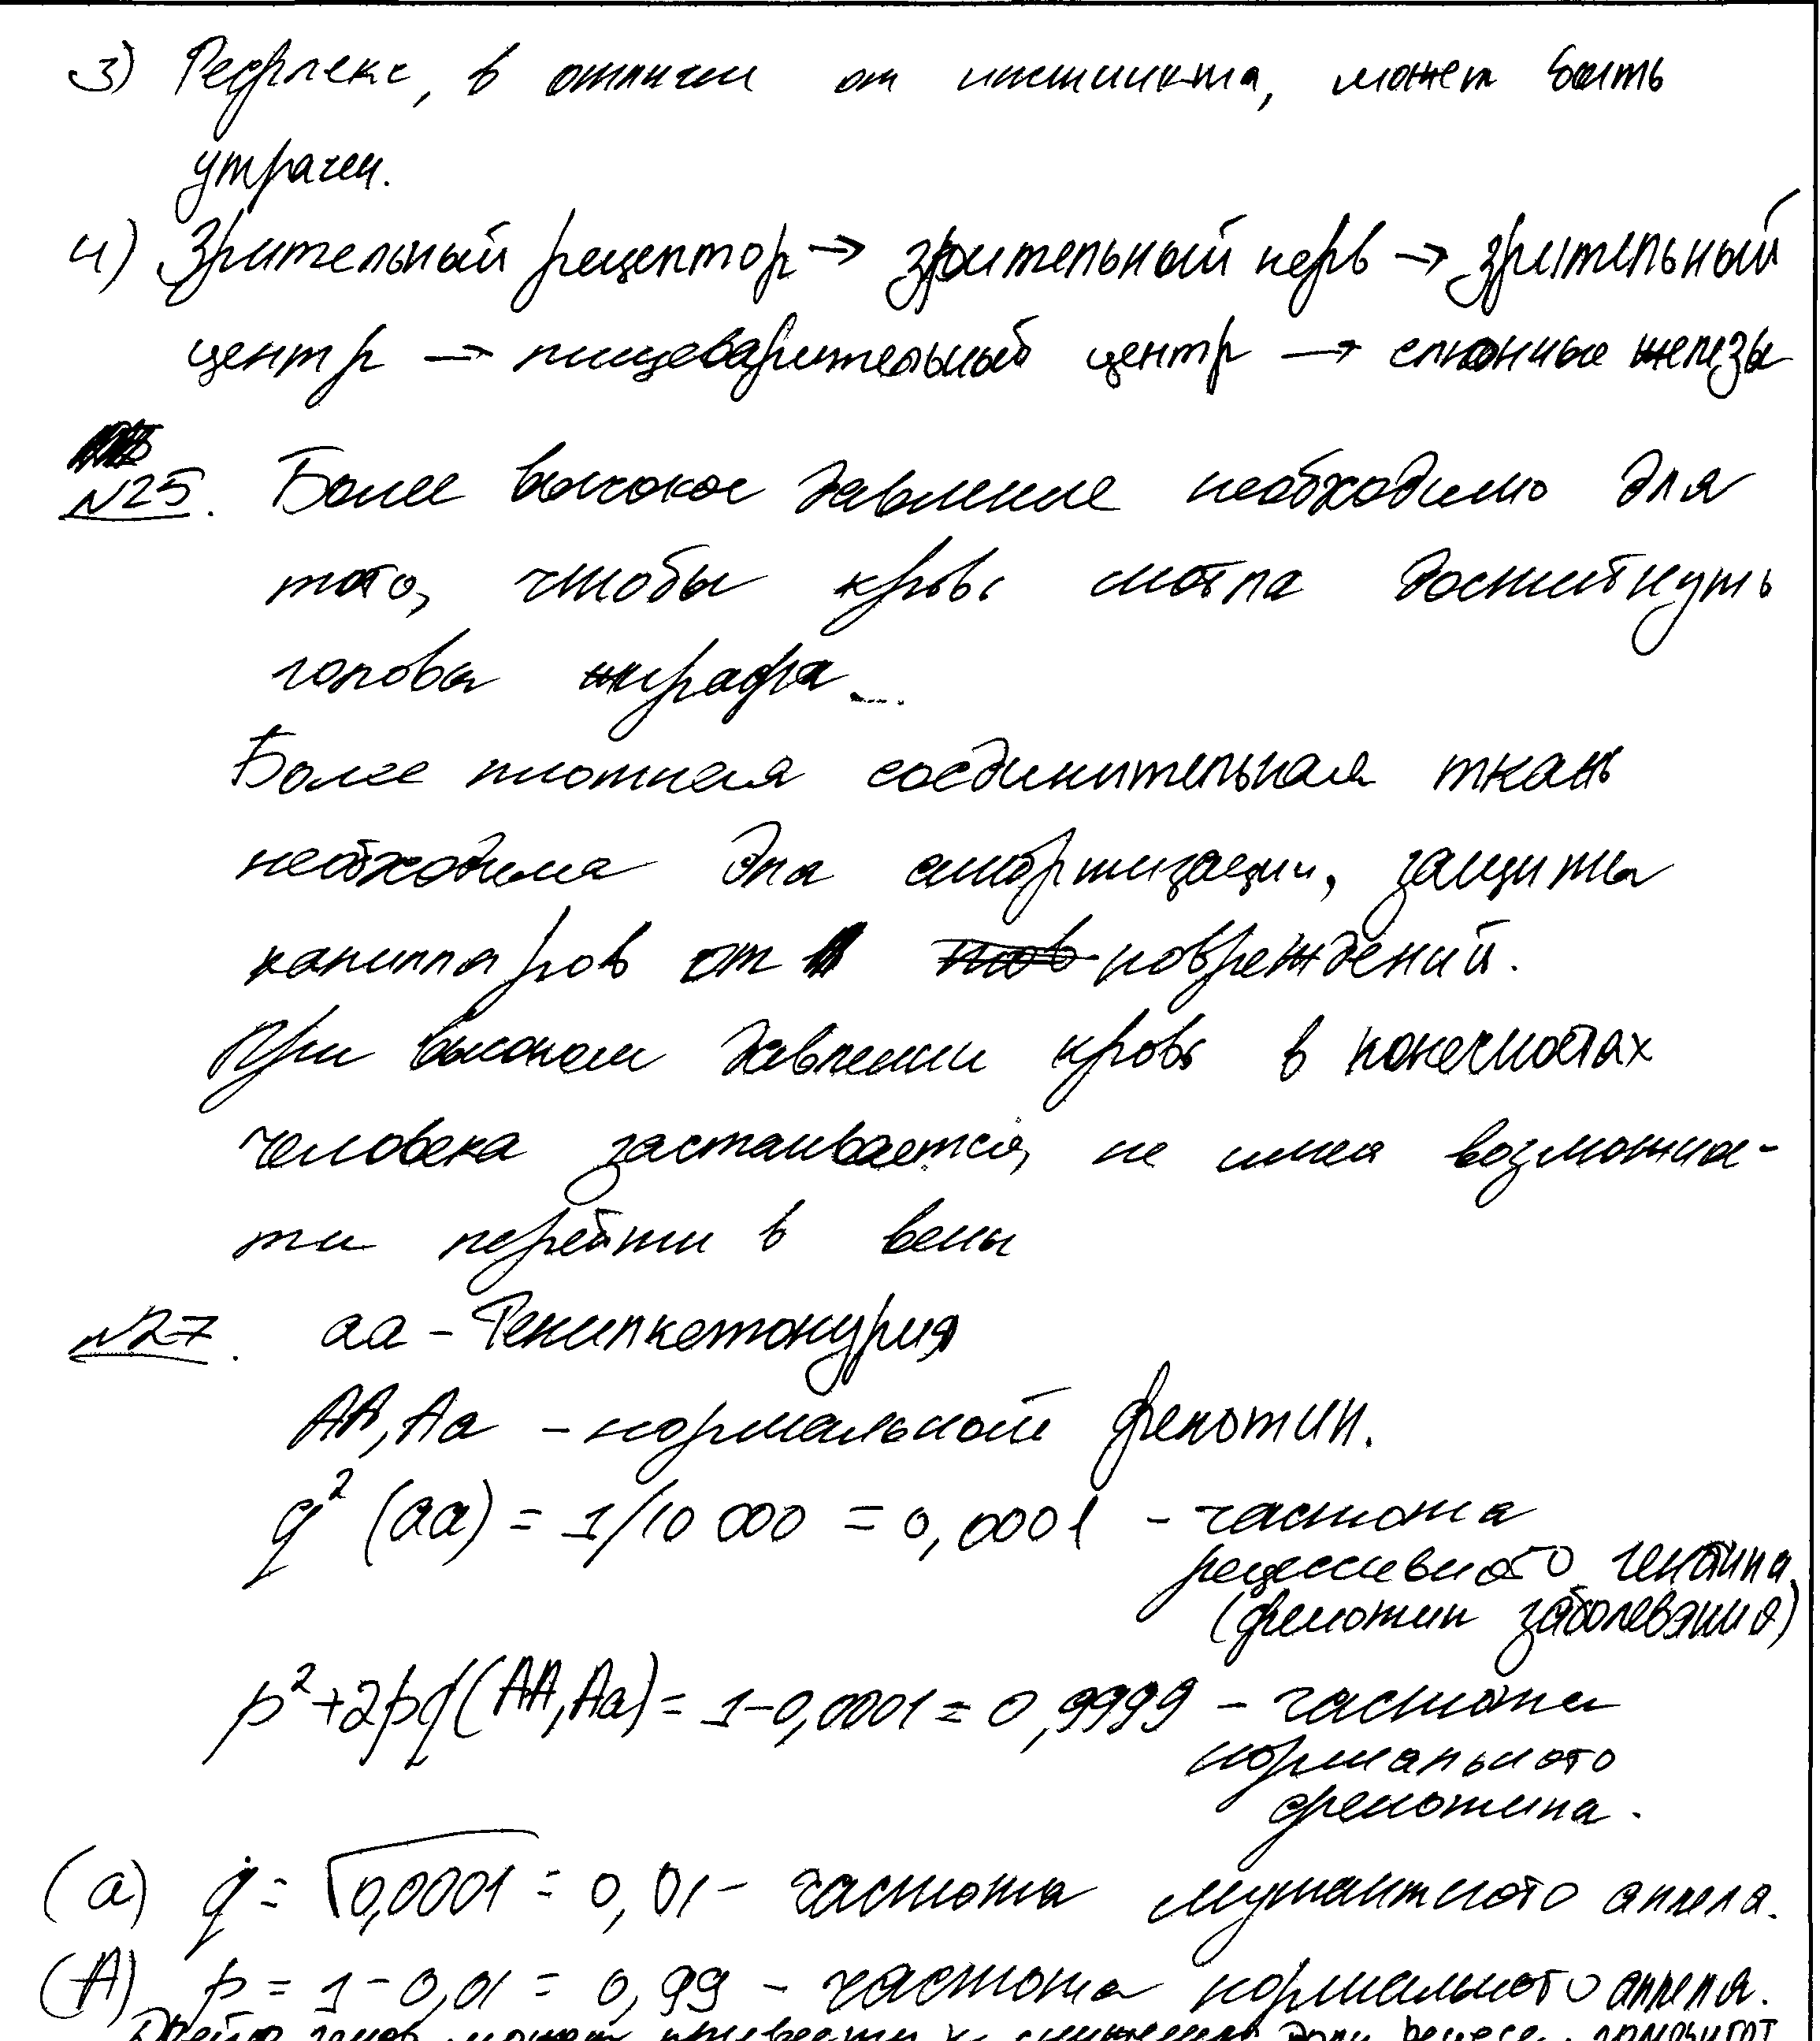 3) Рефлекс, в отличии от инстинкта, может быть
утрачен.
4) Зрительный рецептор → зрительный нерв → зрительный
центр → пищеварительный центр → слюнные железы
№25. Более высокое давление необходимо для
того, чтобы кровь могла достигнуть
головы жирафа
Более плотная соединительная ткань
необходима для амортизации, защиты
капилляров от повреждений.
При высоком давлении кровь в конечностях
человека застаивается, не имея возможнос-
ти перейти в вены
№27. аа – Фенилкетонурия
АА, Аа – нормальный фенотип.
q² (aa) = 1/10 000 = 0,0001 – частота
рецессивного генотипа
(фенотип заболевания)
p²+2pq (АА, Аа) = 1-0,0001 = 0,9999 – частота
нормального
фенотипа.
(а) q = √0,0001 = 0,01 – частота мутантного аллеля.
(А) p = 1-0,01 = 0,99 – частота нормального аллеля.
Дрейф генов может привести к снижению доли